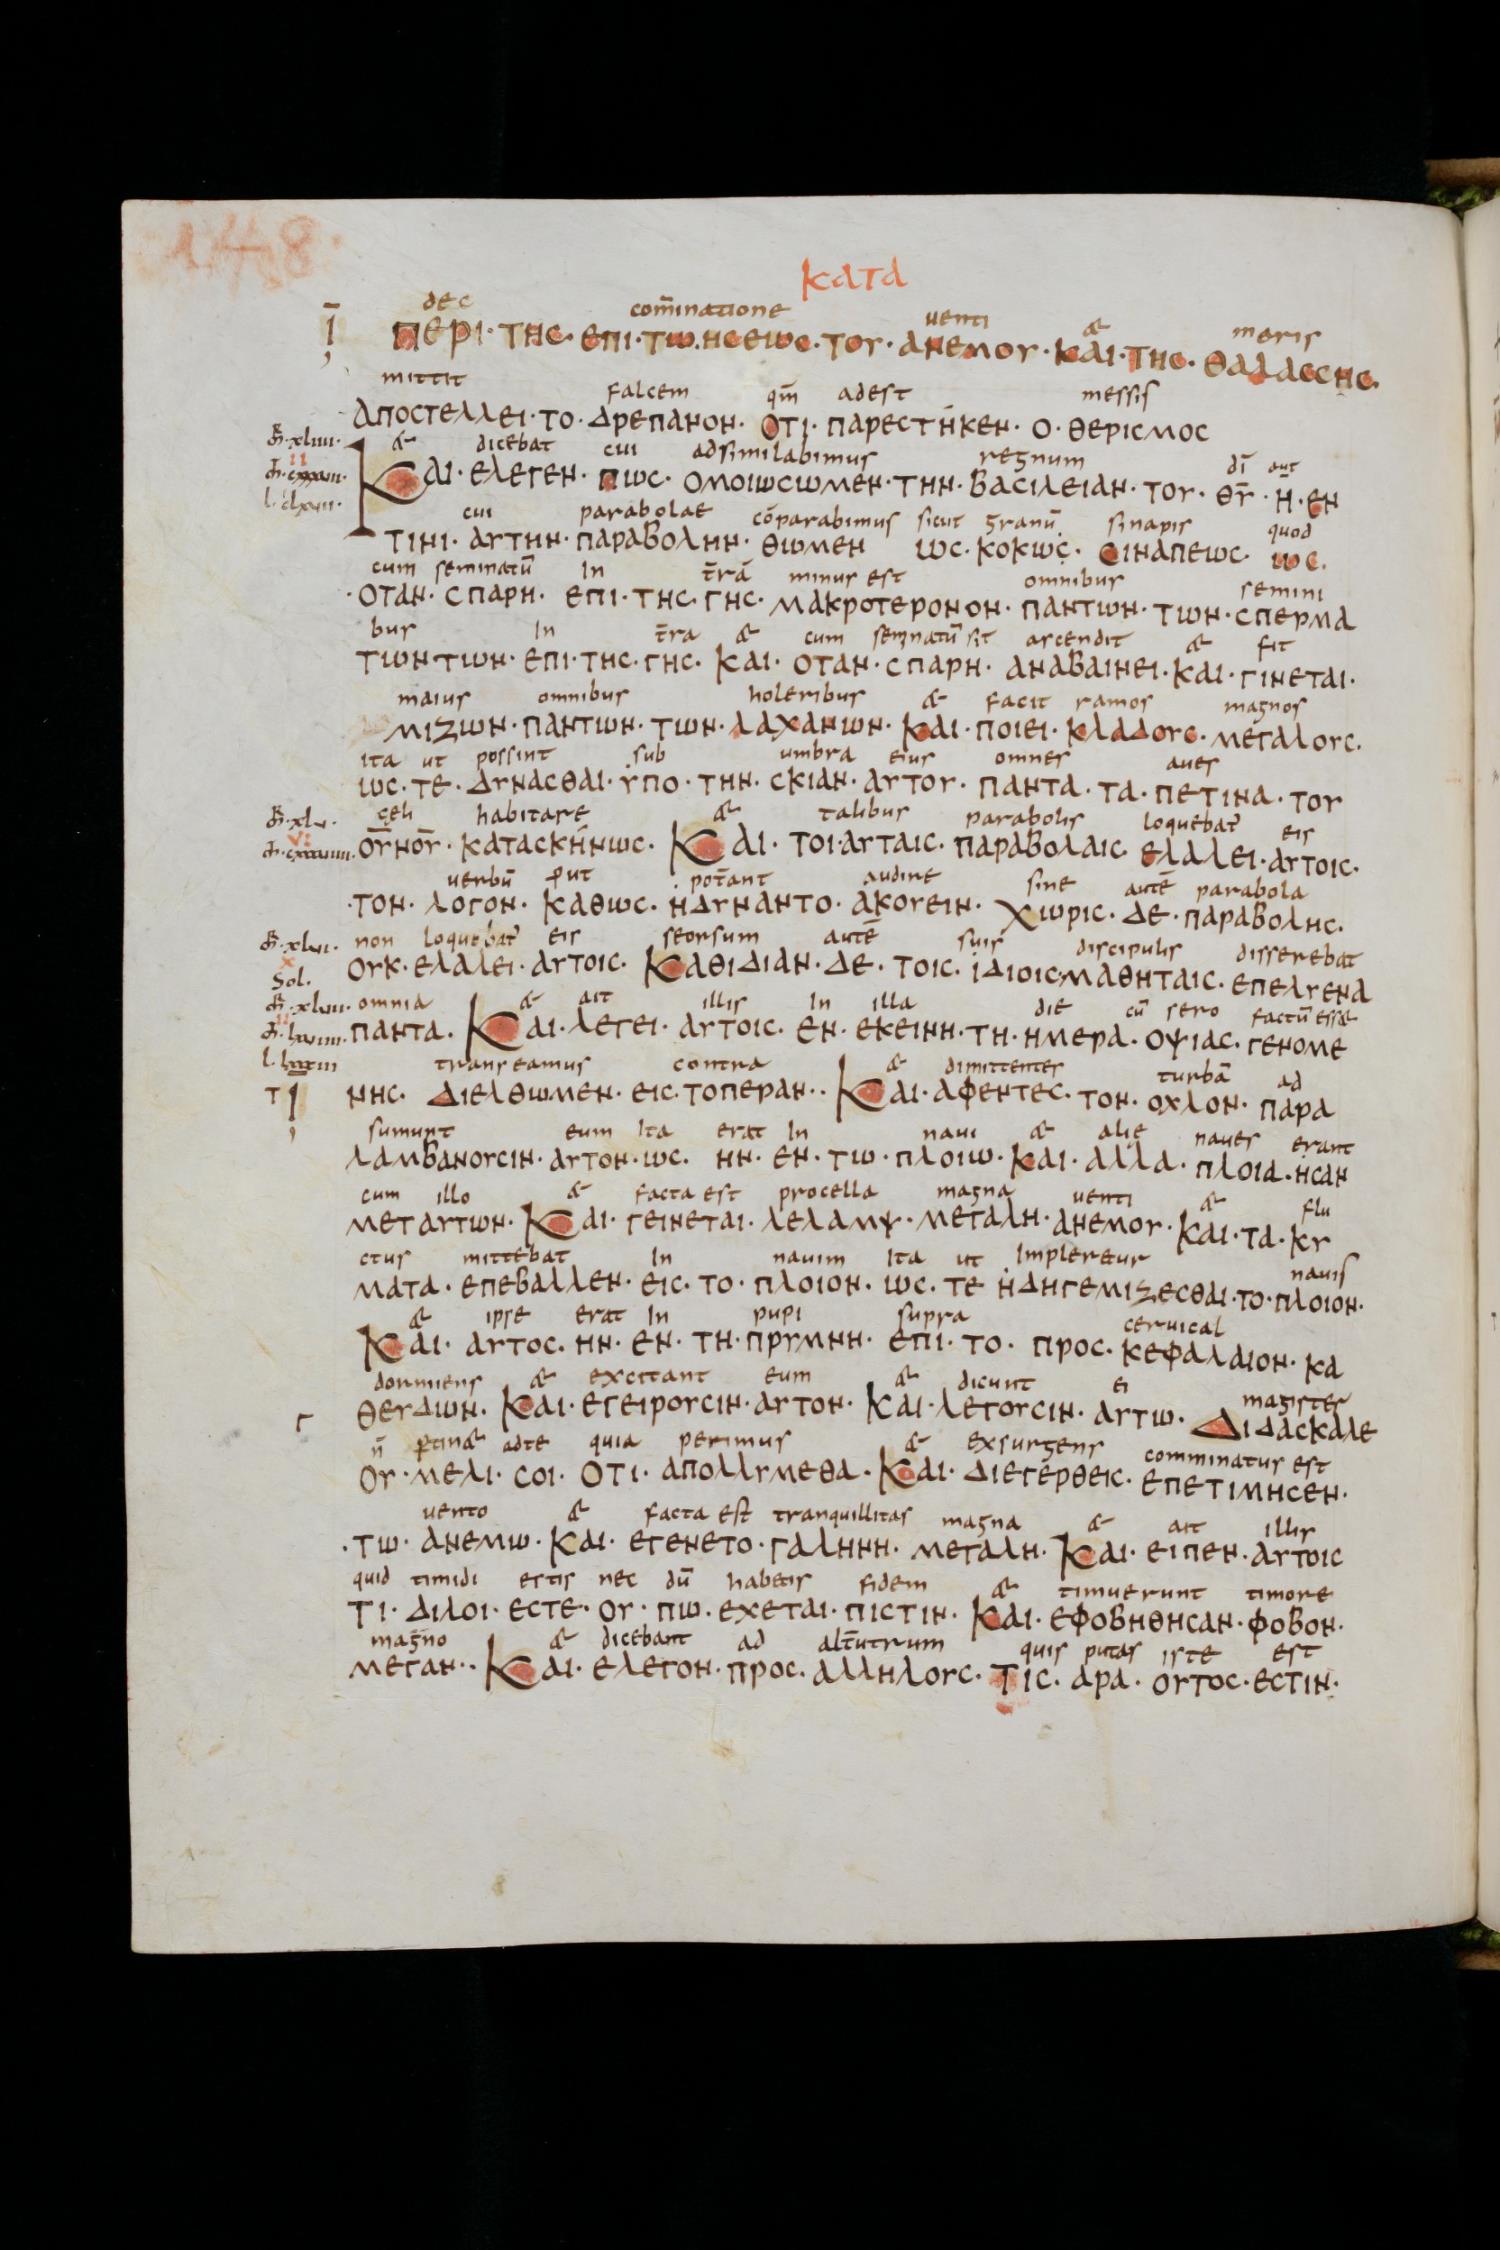 148
κατα
dec com̄inatione uenti & maris
ῑ περι· της· επι·τω·ησεως· τοr· ανεμοr· και· της· θαλαεσης·
mittit falcem qm̄ adest messis
αποστελλει· το· δρεπανον· οτι· παρεστηκεν· ο· θερισμος
& dicebat cui adsimilabimus regnum dī aut
Και· ελεγεν· πως· ομοιωσωμεν· την· βασιλειαν· τοr· θr̄· η̈· εν
cui parabolae cōparabimus sicut granū sinapis quod
τινι· αrτην· παραβολην· θωμεν ως· κοκως· σιναπεως· ως·
cum seminatū In t̄rā minus est omnibus semini
·οταν· σπαρη· επι· της· γης· μακροτερονον· παντων· των· σπερμα
bus In t̄ra & cum seminatū sit ascendit & fit
των·των· επι· της· γης· Και· οταν· σπαρη· αναβαινει· και· γινεται·
maius omnibus holeribus & facit ramos magnos
μιζων· παντων· των· λαχανων· και· ποιει· κλαδοrς· μεγαλοrς·
ita ut possint sub umbra eius omnes aues
ως· τε· δrνασθαι· rπο· την· σκιαν· αrτοr· παντα· τα· πετινα· τοr
cęli habitare & talibus parabolis loquebat̄ eis
οr̄νοr̄· κατασκηνως· Και· τοι·αrταις· παραβολαις ελαλει· αrτοις·
uerbū put pot̄ant audire sine autē parabola
·τον· λογον· καθως· ηδrναντο· ακοrειν· χωρις· δε· παραβολης·
non loquebat̄ eis seorsum autē suis discipulis disserebat
Sol. οrκ· ελαλει· αrτοις· Καθιδιαν· δε· τοις· ιδιοις·μαθηταις· επελrενα
omnia & ait illis In illa die cū sero factū ess&
παντα· Και· λεγει· αrτοις· εν· εκεινη· τη· ημερα· οψιας· γενομε
transeamus contra & dimittentes turbā ad
νης· Διελθωμεν· εις· τοπεραν·· Και· αφεντες· τον· οχλον· παρα
sumunt eum Ita erat In naui & alię naues erant
λαμβανοrσιν· αrτον· ως· ην· εν· τω· πλοιω· και· αλλα· πλοια· ησαν
cum illo & facta est procella magna uenti & flu
μεταrτων· Και· γεινεται· λελαμψ· μεγαλη· ανεμοr· και· τα· κr
ctus mittebat In nauim Ita ut Impleretur nauis
ματα· επεβαλλεν· εις· το· πλοιον· ως· τε ηδηγεμιζεσθαι· το· πλοιον·
& ipse erat In pupi supra ceruical
Και· αrτος· ην· εν· τη· πρrμνη· επι· το· προς· κεφαλαιον· κα
dormiens & excitant eum & dicunt ei magister
θεrδων· Και· εγειροrσιν· αrτον· Και· λεγοrσιν· αrτω· Διδασκαλε
n̄ ptin& adte quia perimus & exsurgens comminatus est
οr· μελι· σοι· οτι· απολλrμεθα· Και· διεγερθεις· επετιμησεν·
uento & facta est tranquillitas magna & ait illis
·τω· ανεμω· Και· εγενετο· γαληνη· μεγαλη· Και· ειπεν· αrτοις
quid timidi estis nec dū habetis fidem & timuerunt timore
τι· διλοι· εστε· οr· πω· εχεται· πιστιν· Και· εφοβηθησαν· φοβον·
magno & dicebant ad alt̄utrum quis putas iste est
μεγαν·· Και· ελεγον· προς· αλληλοrς· Τις· αρα· οrτος· εστιν·